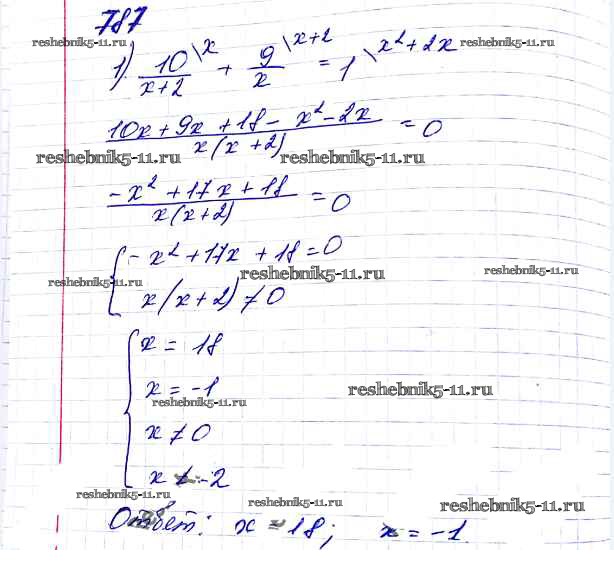 787
reshebnik5-11.ru reshebnik5-11.ru
1) 10/(x+2) \x + 9/x \x+2 = 1 \x²+2x
(10x + 9x + 18 - x² - 2x)/(x(x+2)) = 0
reshebnik5-11.ru reshebnik5-11.ru
(-x² + 17x + 18)/(x(x+2)) = 0
{ -x² + 17x + 18 = 0
reshebnik5-11.ru reshebnik5-11.ru reshebnik5-11.ru
x(x+2) ≠ 0
{ x = 18
x = -1
reshebnik5-11.ru reshebnik5-11.ru
x ≠ 0
x ≠ -2
reshebnik5-11.ru reshebnik5-11.ru reshebnik5-11.ru
Ответ: x = 18; x = -1.